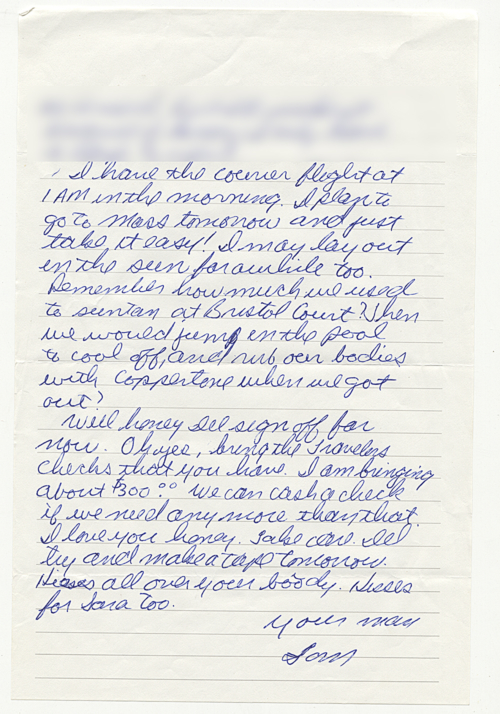 I have the courier flight at
1 AM in the morning. I plan to
go to mass tomorrow and just
take it easy! I may lay out
in the sun for awhile too.
Remember how much we used
to suntan at Bristol Court? When
we would jump in the pool
to cool off, and rub our bodies
with Coppertone when we got
out?
Well honey I'll sign off for
now. Oh yes, bring the Travelers
checks that you have. I am bringing
about $300.00 We can cash a check
if we need any more than that.
I love you honey. Take care. I'll
try and make a tape tomorrow.
Kisses all over your body. Kisses
for Sara too.
Your man